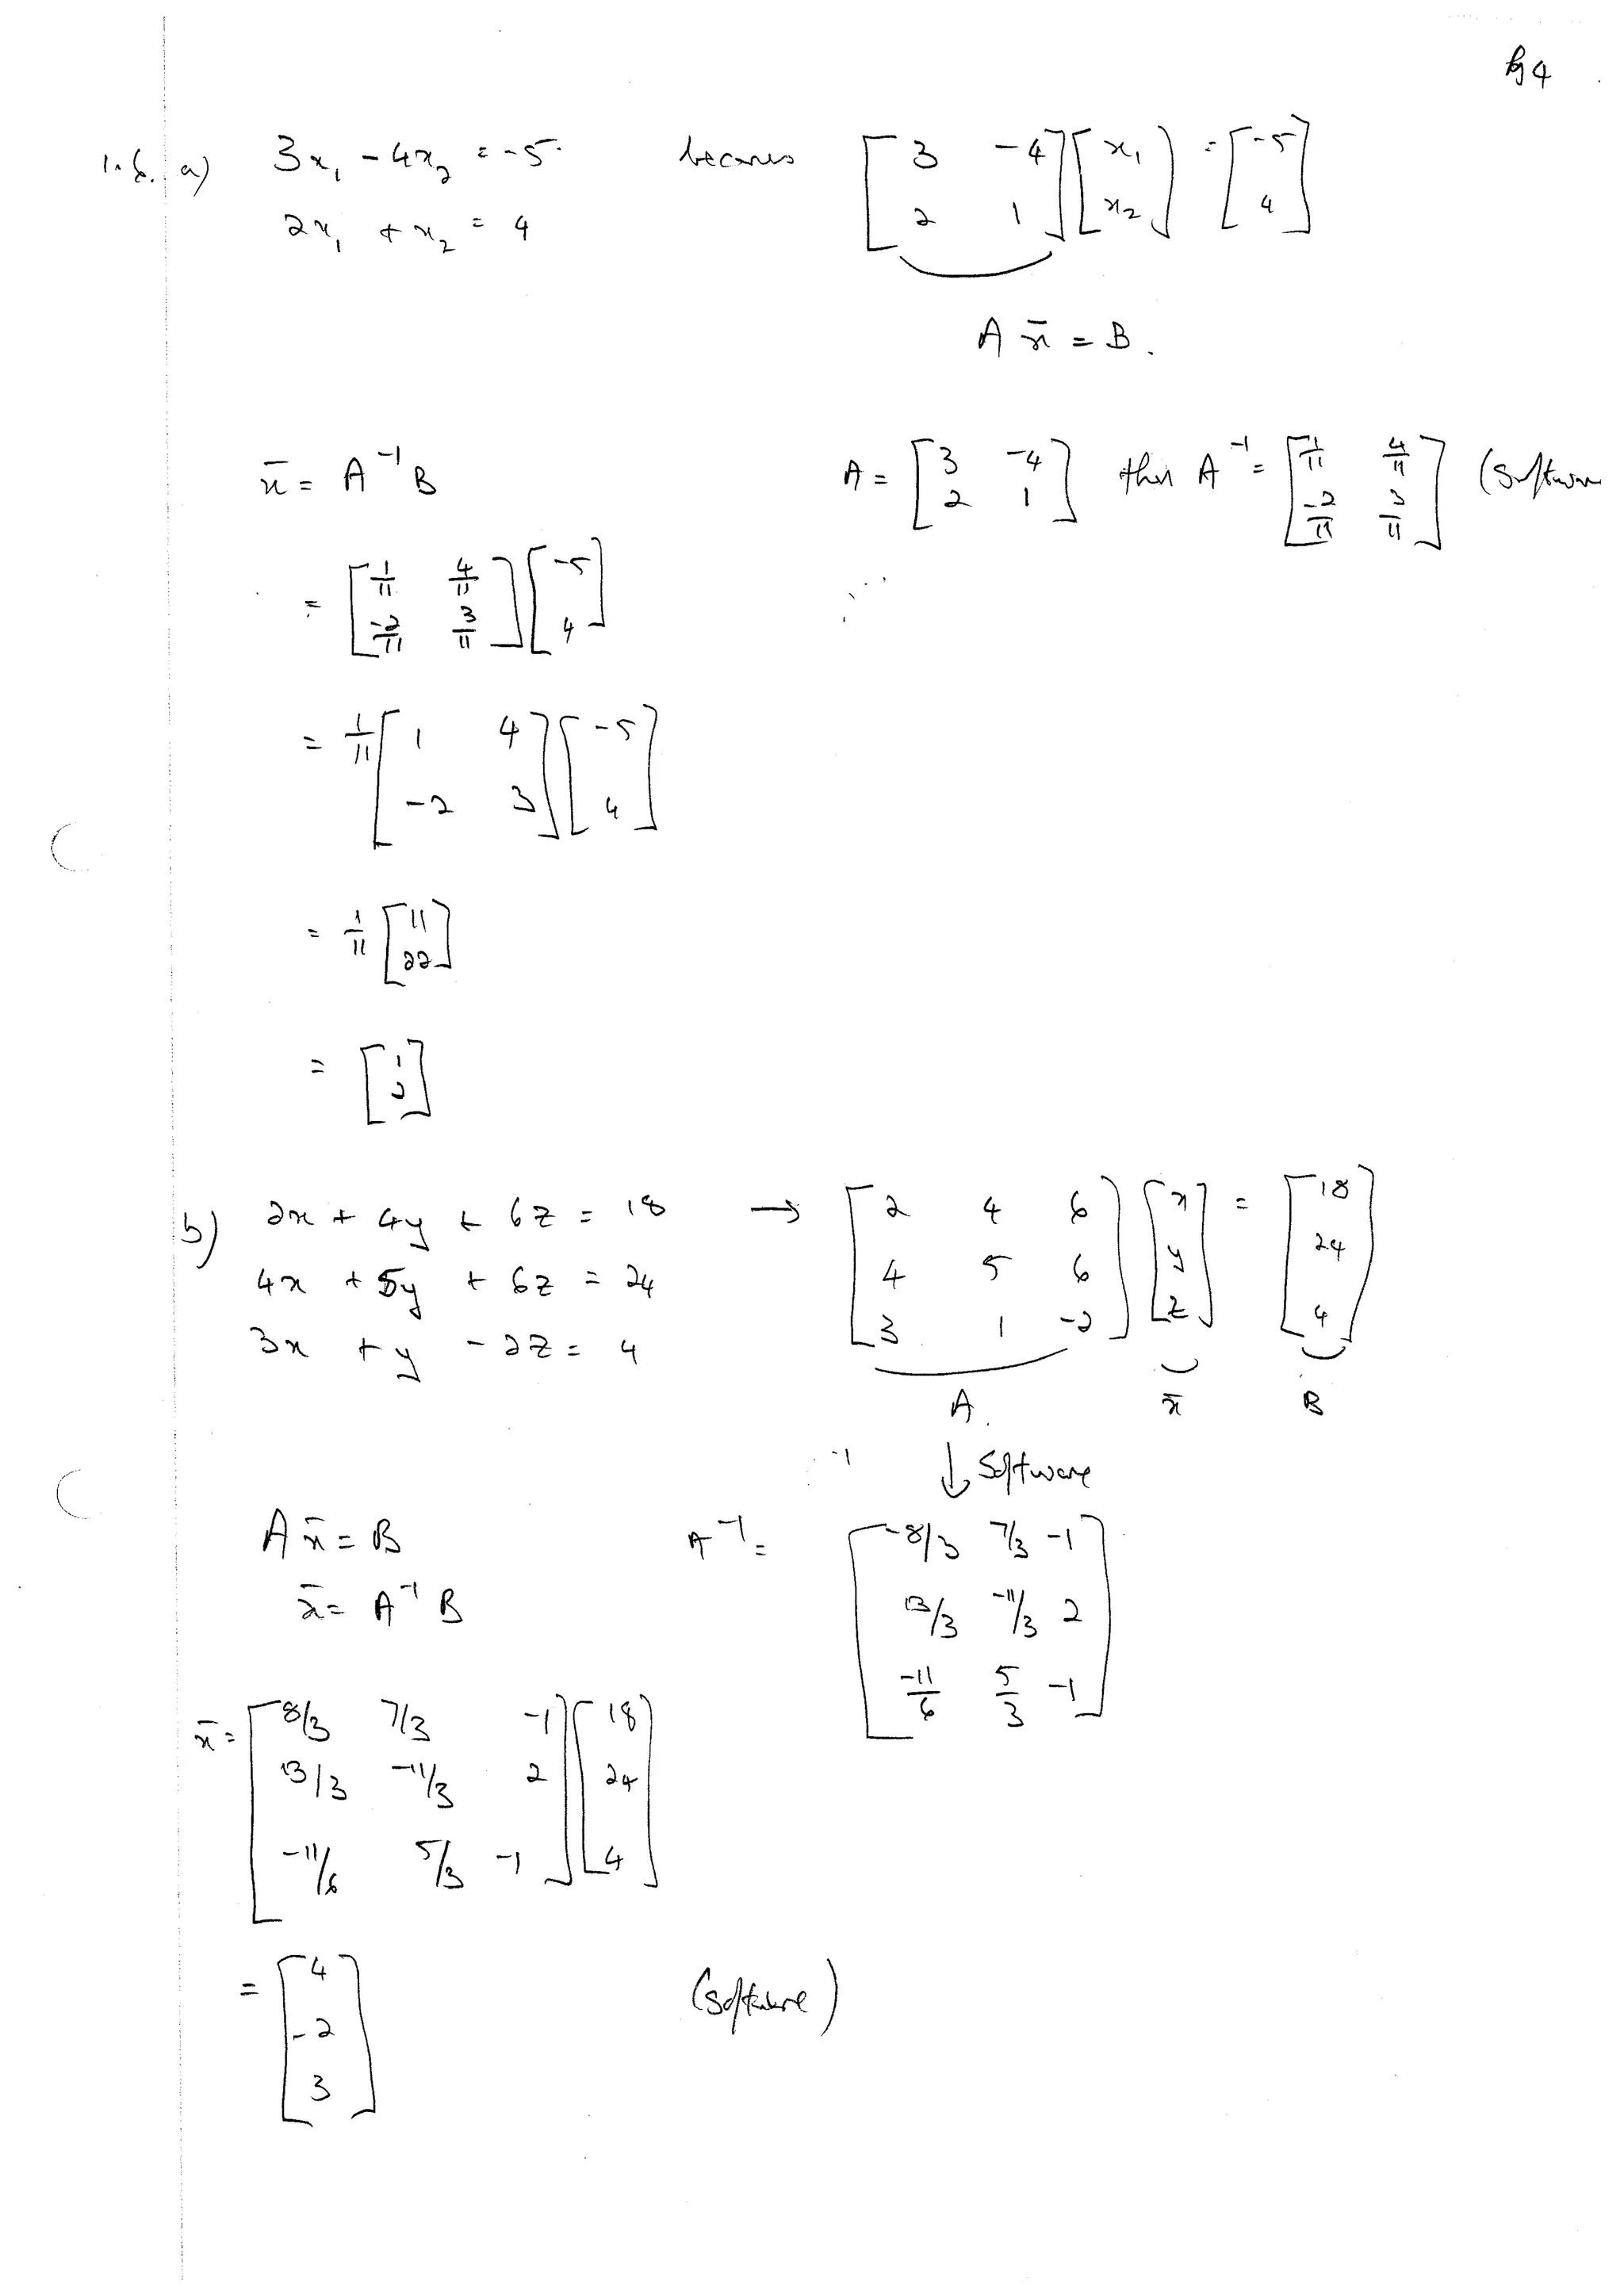 Pg 4
1.6. a) 3x₁ - 4x₂ = -5 becomes [3 -4; 2 1][x₁; x₂] = [-5; 4]
2x₁ + x₂ = 4
A x̄ = B.
x̄ = A⁻¹B A = [3 -4; 2 1] then A⁻¹ = [1/11 4/11; -2/11 3/11] (Software
= [1/11 4/11; -2/11 3/11][-5; 4]
= 1/11 [1 4; -2 3][-5; 4]
= 1/11 [11; 22]
= [1; 2]
b) 2x + 4y + 6z = 18 → [2 4 6; 4 5 6; 3 1 -2][x; y; z] = [18; 24; 4]
4x + 5y + 6z = 24
3x + y - 2z = 4
A. x̄ B
-1 ↓ Software
A x̄ = B A⁻¹ = [-8/3 7/3 -1; 13/3 -11/3 2; -11/6 5/3 -1]
x̄ = A⁻¹ B
x̄ = [-8/3 7/3 -1; 13/3 -11/3 2; -11/6 5/3 -1][18; 24; 4]
= [4; -2; 3] (Software)